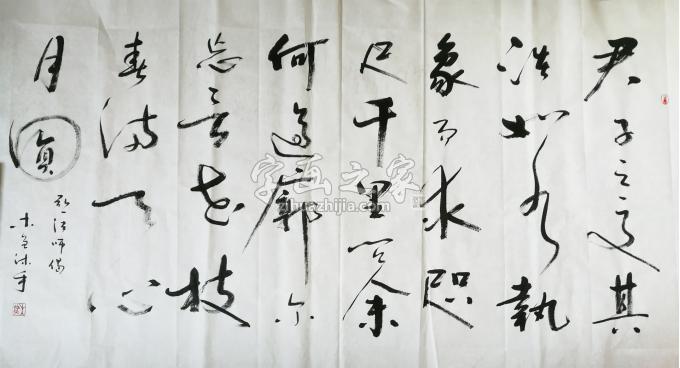 君子之交其
淡如水執
象而求咫
尺千里問余
何適廓尔
忘言花枝
春滿天心
月圓
弘一法师偈
字画之家
zihuazhijia.com